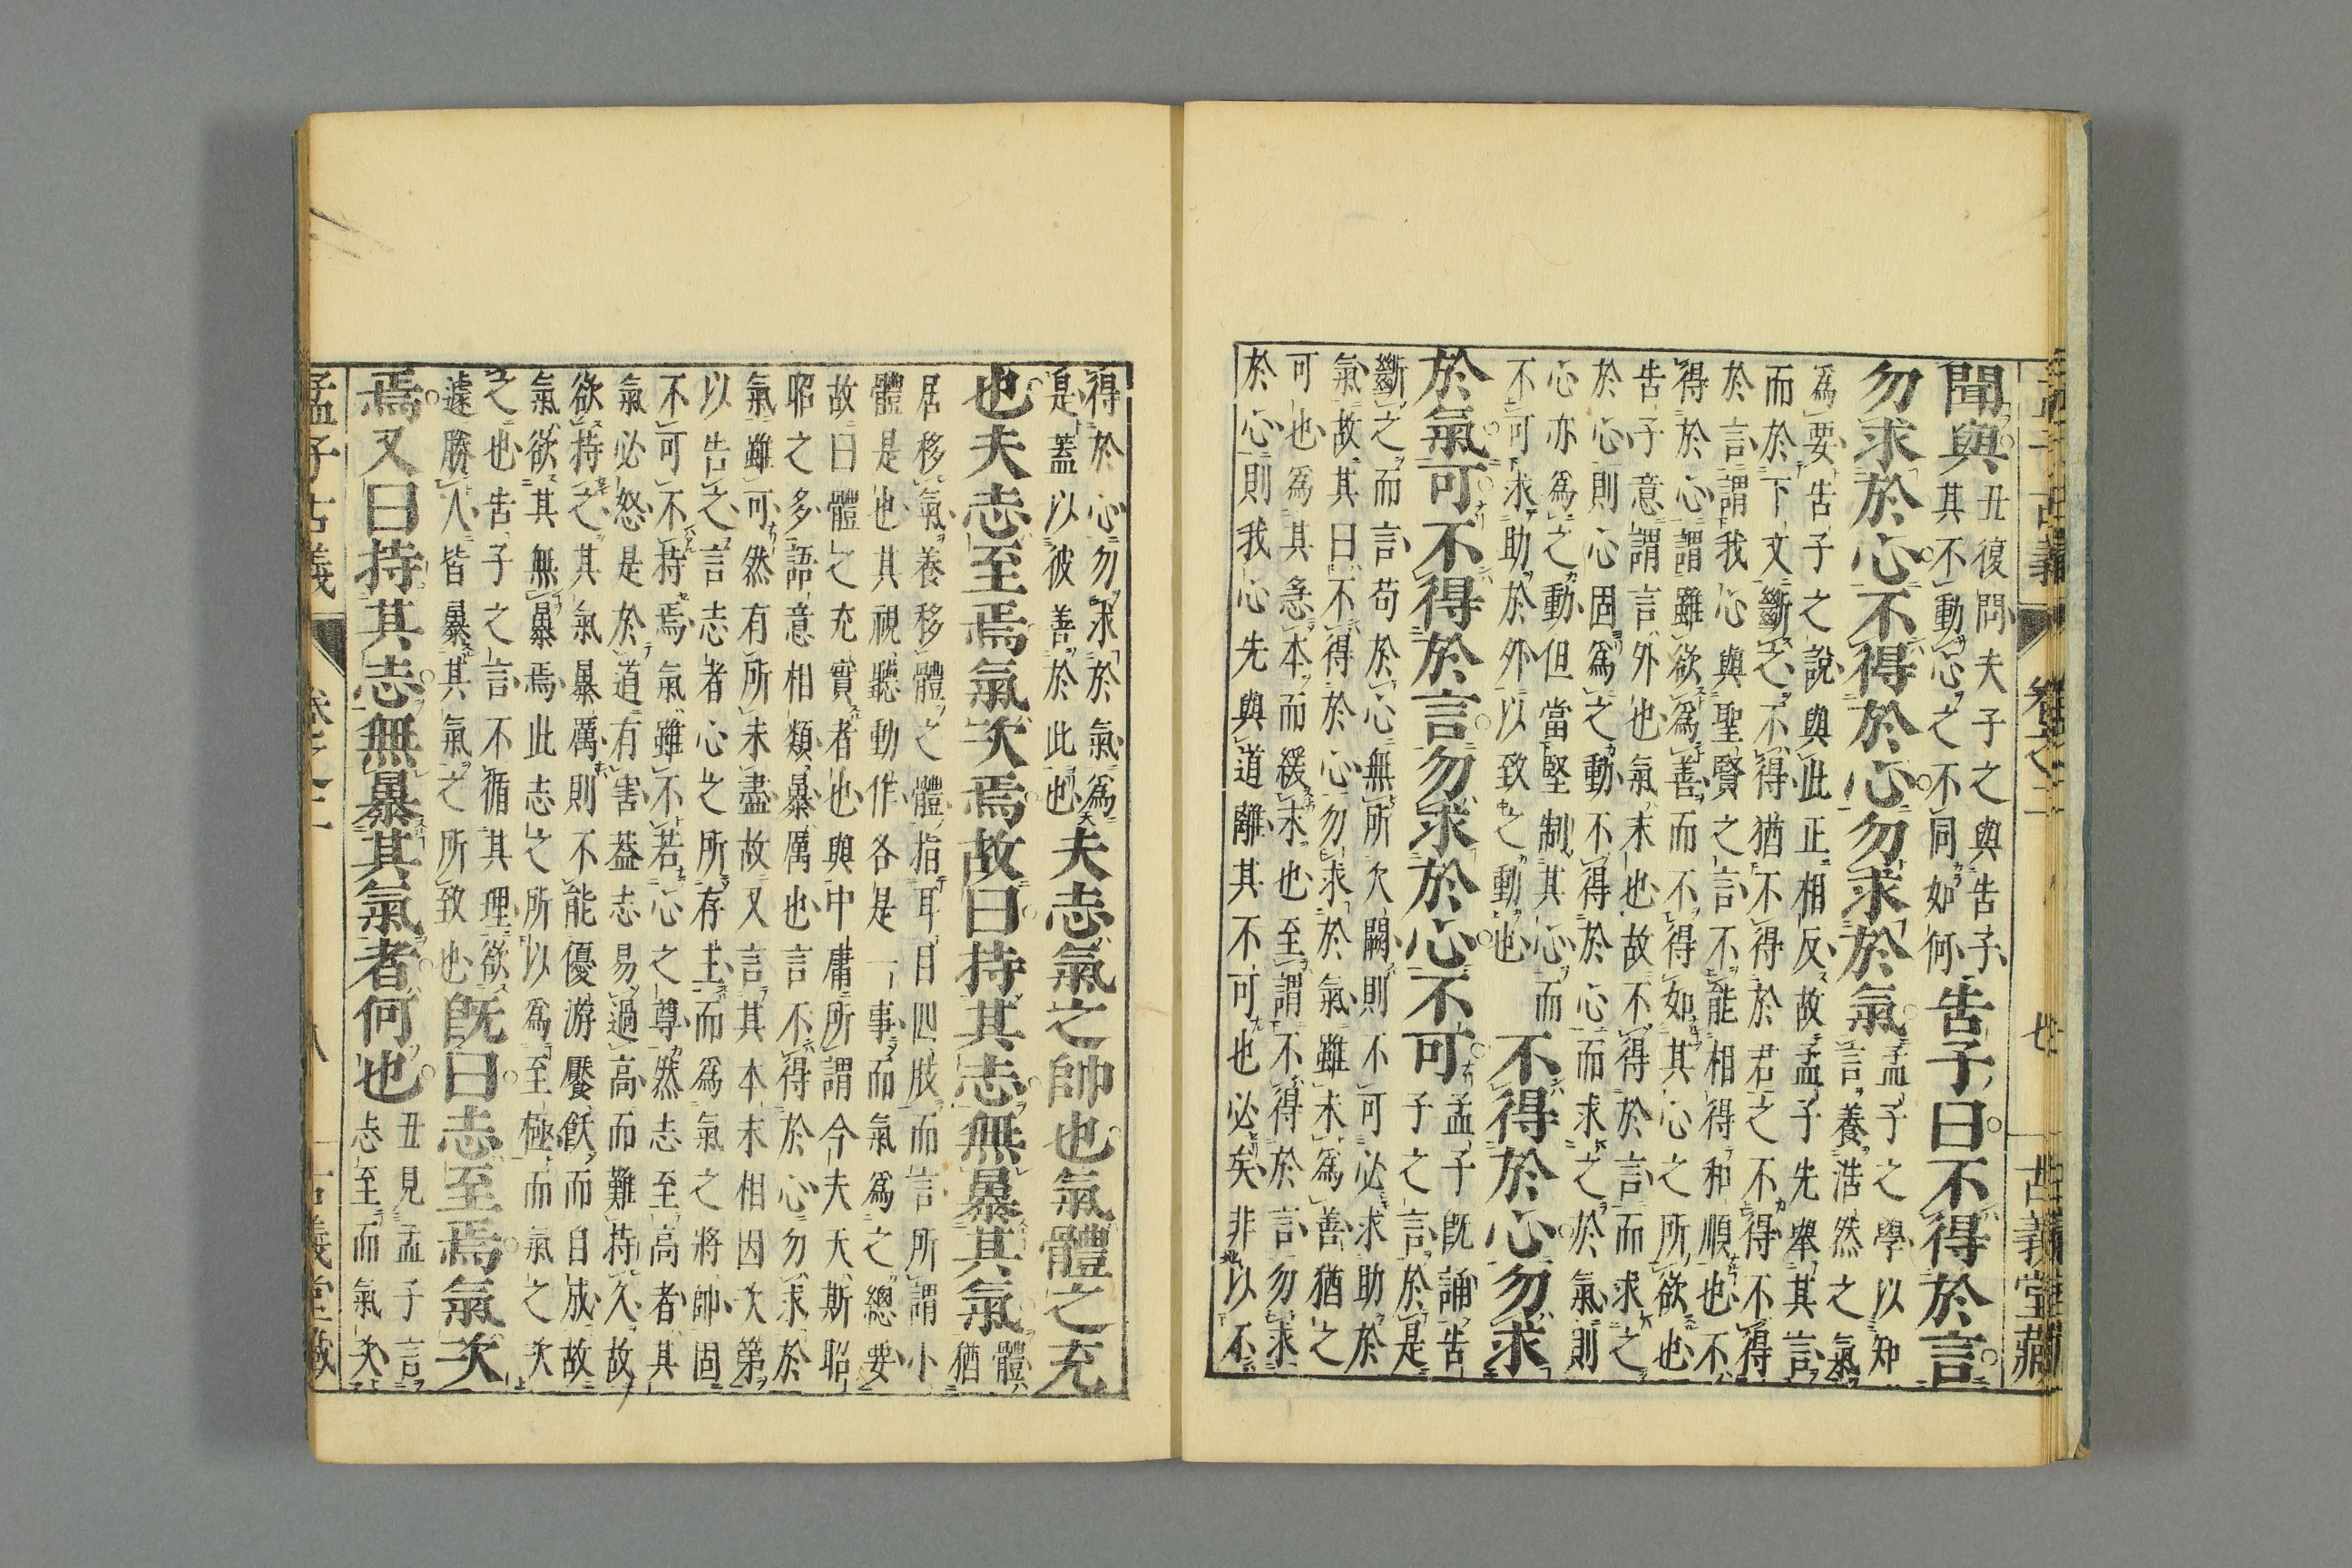 孟子古義 卷之二 七 古義堂藏
聞與
丑復問夫子之與告子
其不動心之不同如何
告子曰不得於言
勿求於心不得於心勿求於氣
孟子之學以知
言養浩然之氣
爲要告子之說與此正相反故孟子先舉其言
而於下文斷之不得猶不得於君之不得不得
於言謂我心與聖賢之言不能相得和順也不
得於心謂雖欲爲善而不得如其心之所欲也
告子意謂言外也氣末也故不得於言而求之
於心則心固爲之動不得於心而求之於氣則
心亦爲之動但當堅制其心而
不可求助於外以致之動也
不得於心勿求
於氣可不得於言勿求於心不可
孟子既誦告
子之言於是
斷之而言苟於心無所欠闕則不可必求助於
氣故其曰不得於心勿求於氣雖未爲善猶之
可也爲其急本而緩末也至謂不得於言勿求
於心則我心先與道離其不可也必矣非以不
得於心勿求於氣爲
是蓋以彼善於此也
夫志氣之帥也氣體之充
也夫志至焉氣次焉故曰持其志無暴其氣
體
猶
居移氣養移體之體指耳目四肢而言所謂小
體是也其視聽動作各是一事而氣爲之總要
故曰體之充實者也與中庸所謂今夫天斯昭
昭之多語意相類暴厲也言不得於心勿求於
氣雖可然有所未盡故又言其本末相因次第
以告之言志者心之所存主而爲氣之將帥固
不可不持焉氣雖不若心之尊然志至高者其
氣必怒是於道有害蓋志易過高而難持久故
欲持之其氣暴厲則不能優游饜飫而自成故
氣欲其無暴焉此志之所以爲至極而氣之次
之也告子之言不循其理欲
遽勝人皆暴其氣之所致也
既曰志至焉氣次
焉又曰持其志無暴其氣者何也
丑見孟子言
志至而氣次
孟子古義 卷之二 八 古義堂藏